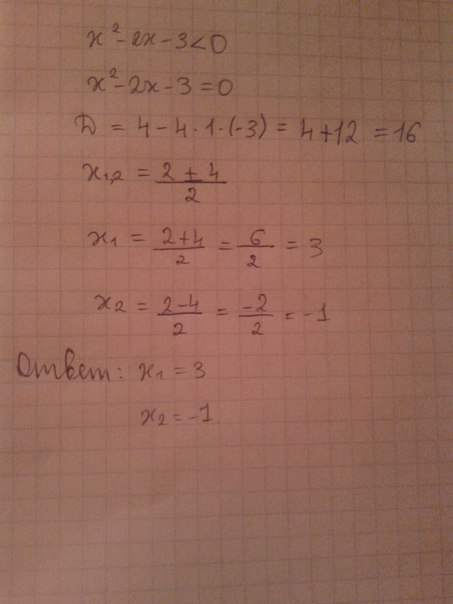 x² - 2x - 3 < 0
x² - 2x - 3 = 0
D = 4 - 4 · 1 · (-3) = 4 + 12 = 16
x₁,₂ = (2 ± 4)/2
x₁ = (2+4)/2 = 6/2 = 3
x₂ = (2-4)/2 = -2/2 = -1
Ответ: x₁ = 3
x₂ = -1